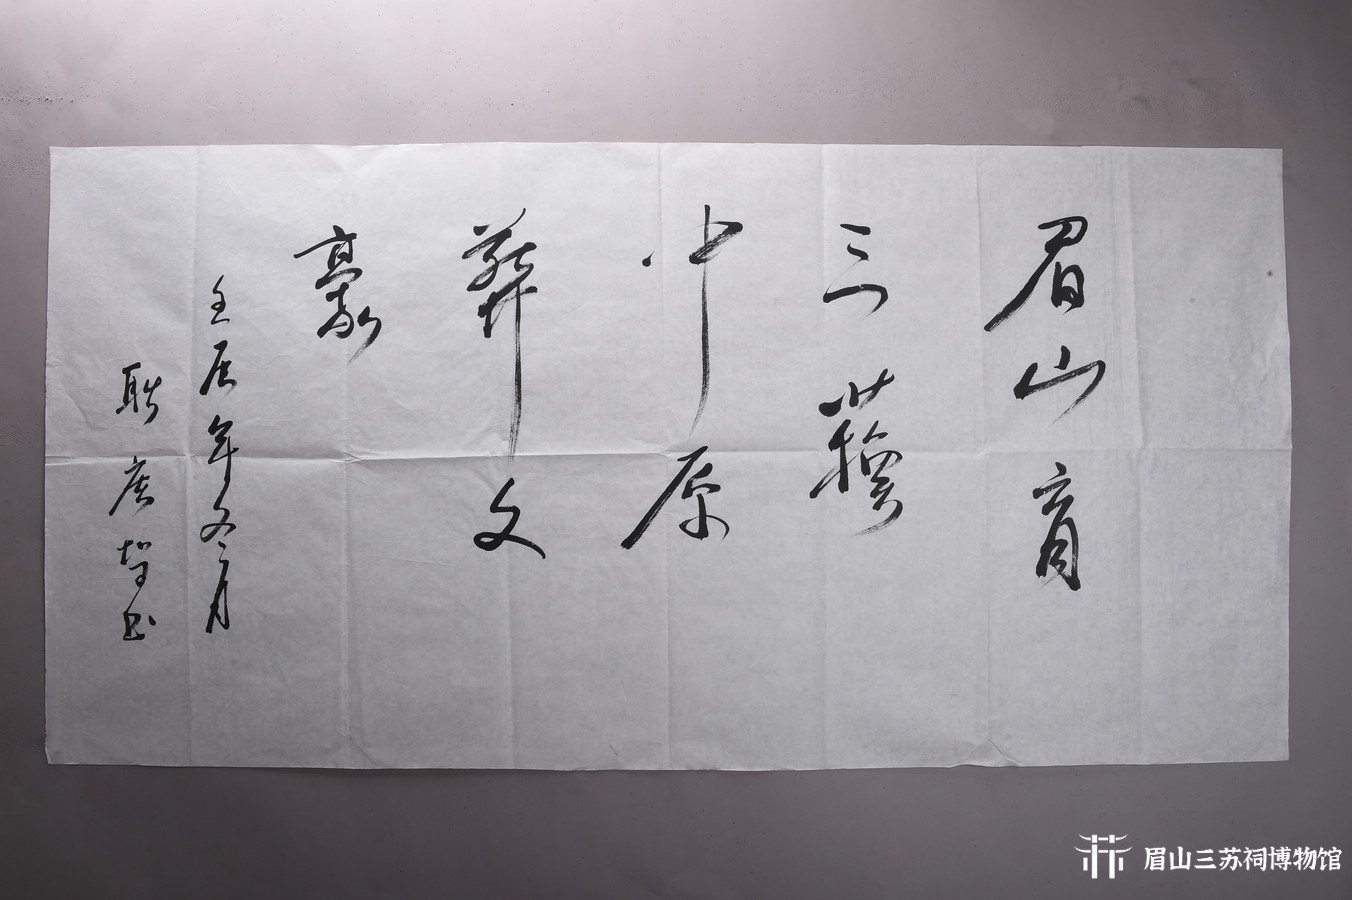 眉山育
三蘓
中原
葬文
豪
壬辰年冬月
耿庆
书
眉山三苏祠博物馆